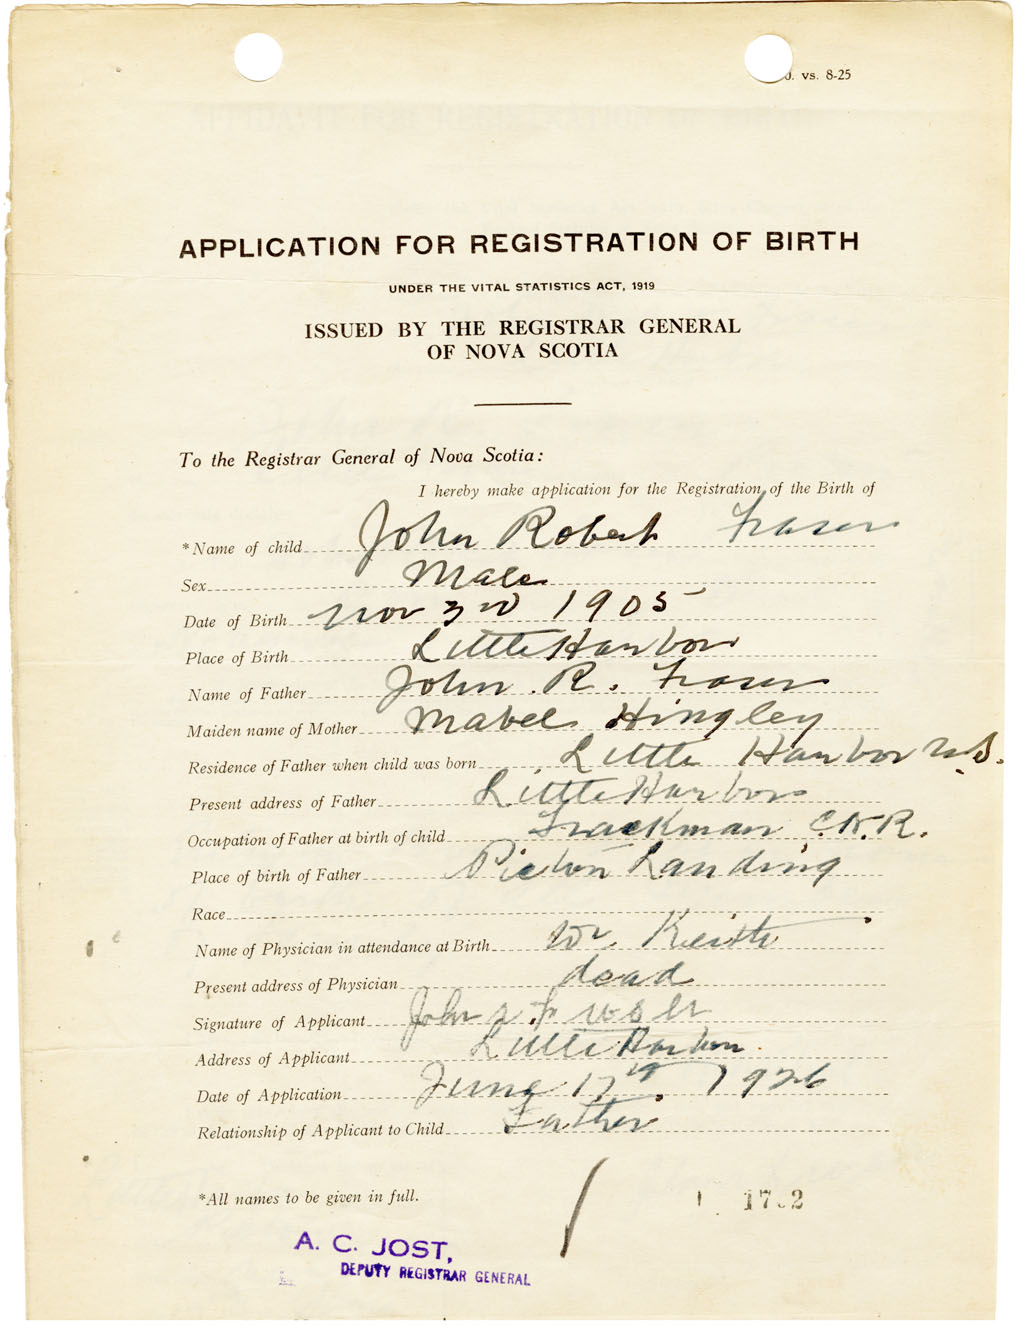 vs. 8-25
APPLICATION FOR REGISTRATION OF BIRTH
UNDER THE VITAL STATISTICS ACT, 1919
ISSUED BY THE REGISTRAR GENERAL
OF NOVA SCOTIA
To the Registrar General of Nova Scotia:
I hereby make application for the Registration of the Birth of
*Name of child John Robert Fraser
Sex Male
Date of Birth Nov 3rd 1905
Place of Birth Little Harbor
Name of Father John R. Fraser
Maiden name of Mother Mabel Hingley
Residence of Father when child was born Little Harbor N.S.
Present address of Father Little Harbor
Occupation of Father at birth of child Trackman C.N.R.
Place of birth of Father Pictou Landing
Race
Name of Physician in attendance at Birth Dr Keith
Present address of Physician dead
Signature of Applicant John
Address of Applicant Little Harbor
Date of Application June 17th 1926
Relationship of Applicant to Child Father
*All names to be given in full.
A. C. JOST,
DEPUTY REGISTRAR GENERAL